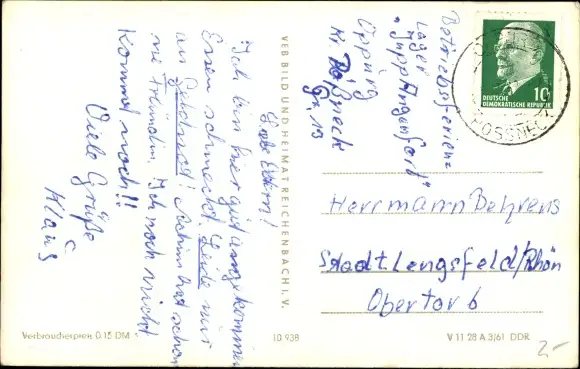 Liebe Eltern!
Ich bin hier gut angekommen
Essen schmeckt. Leide nur
an Geldnot! Achim hat schon
ne Freundin. Ich noch nicht
Kommt noch!!
Viele Grüße
Klaus
VEB BILD UND HEIMAT REICHENBACH I. V.
Betriebsferien-
lager
"Jupp Angenfort"
Oppurg
Kr. Pößneck
Gr. 13
DEUTSCHE
DEMOKRATISCHE REPUBLIK
10
PÖSSNECK
Herrmann Behrens
Stadtlengsfeld/Rhön
Obertor 6
Verbraucherpreis 0,15 DM
10 938
V 11 28 A 3/61 DDR
2,-